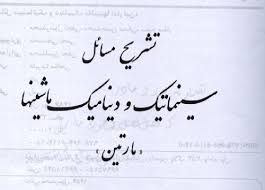 تشریح مسائل
سینماتیک و دینامیک ماشینها
«مارتین»